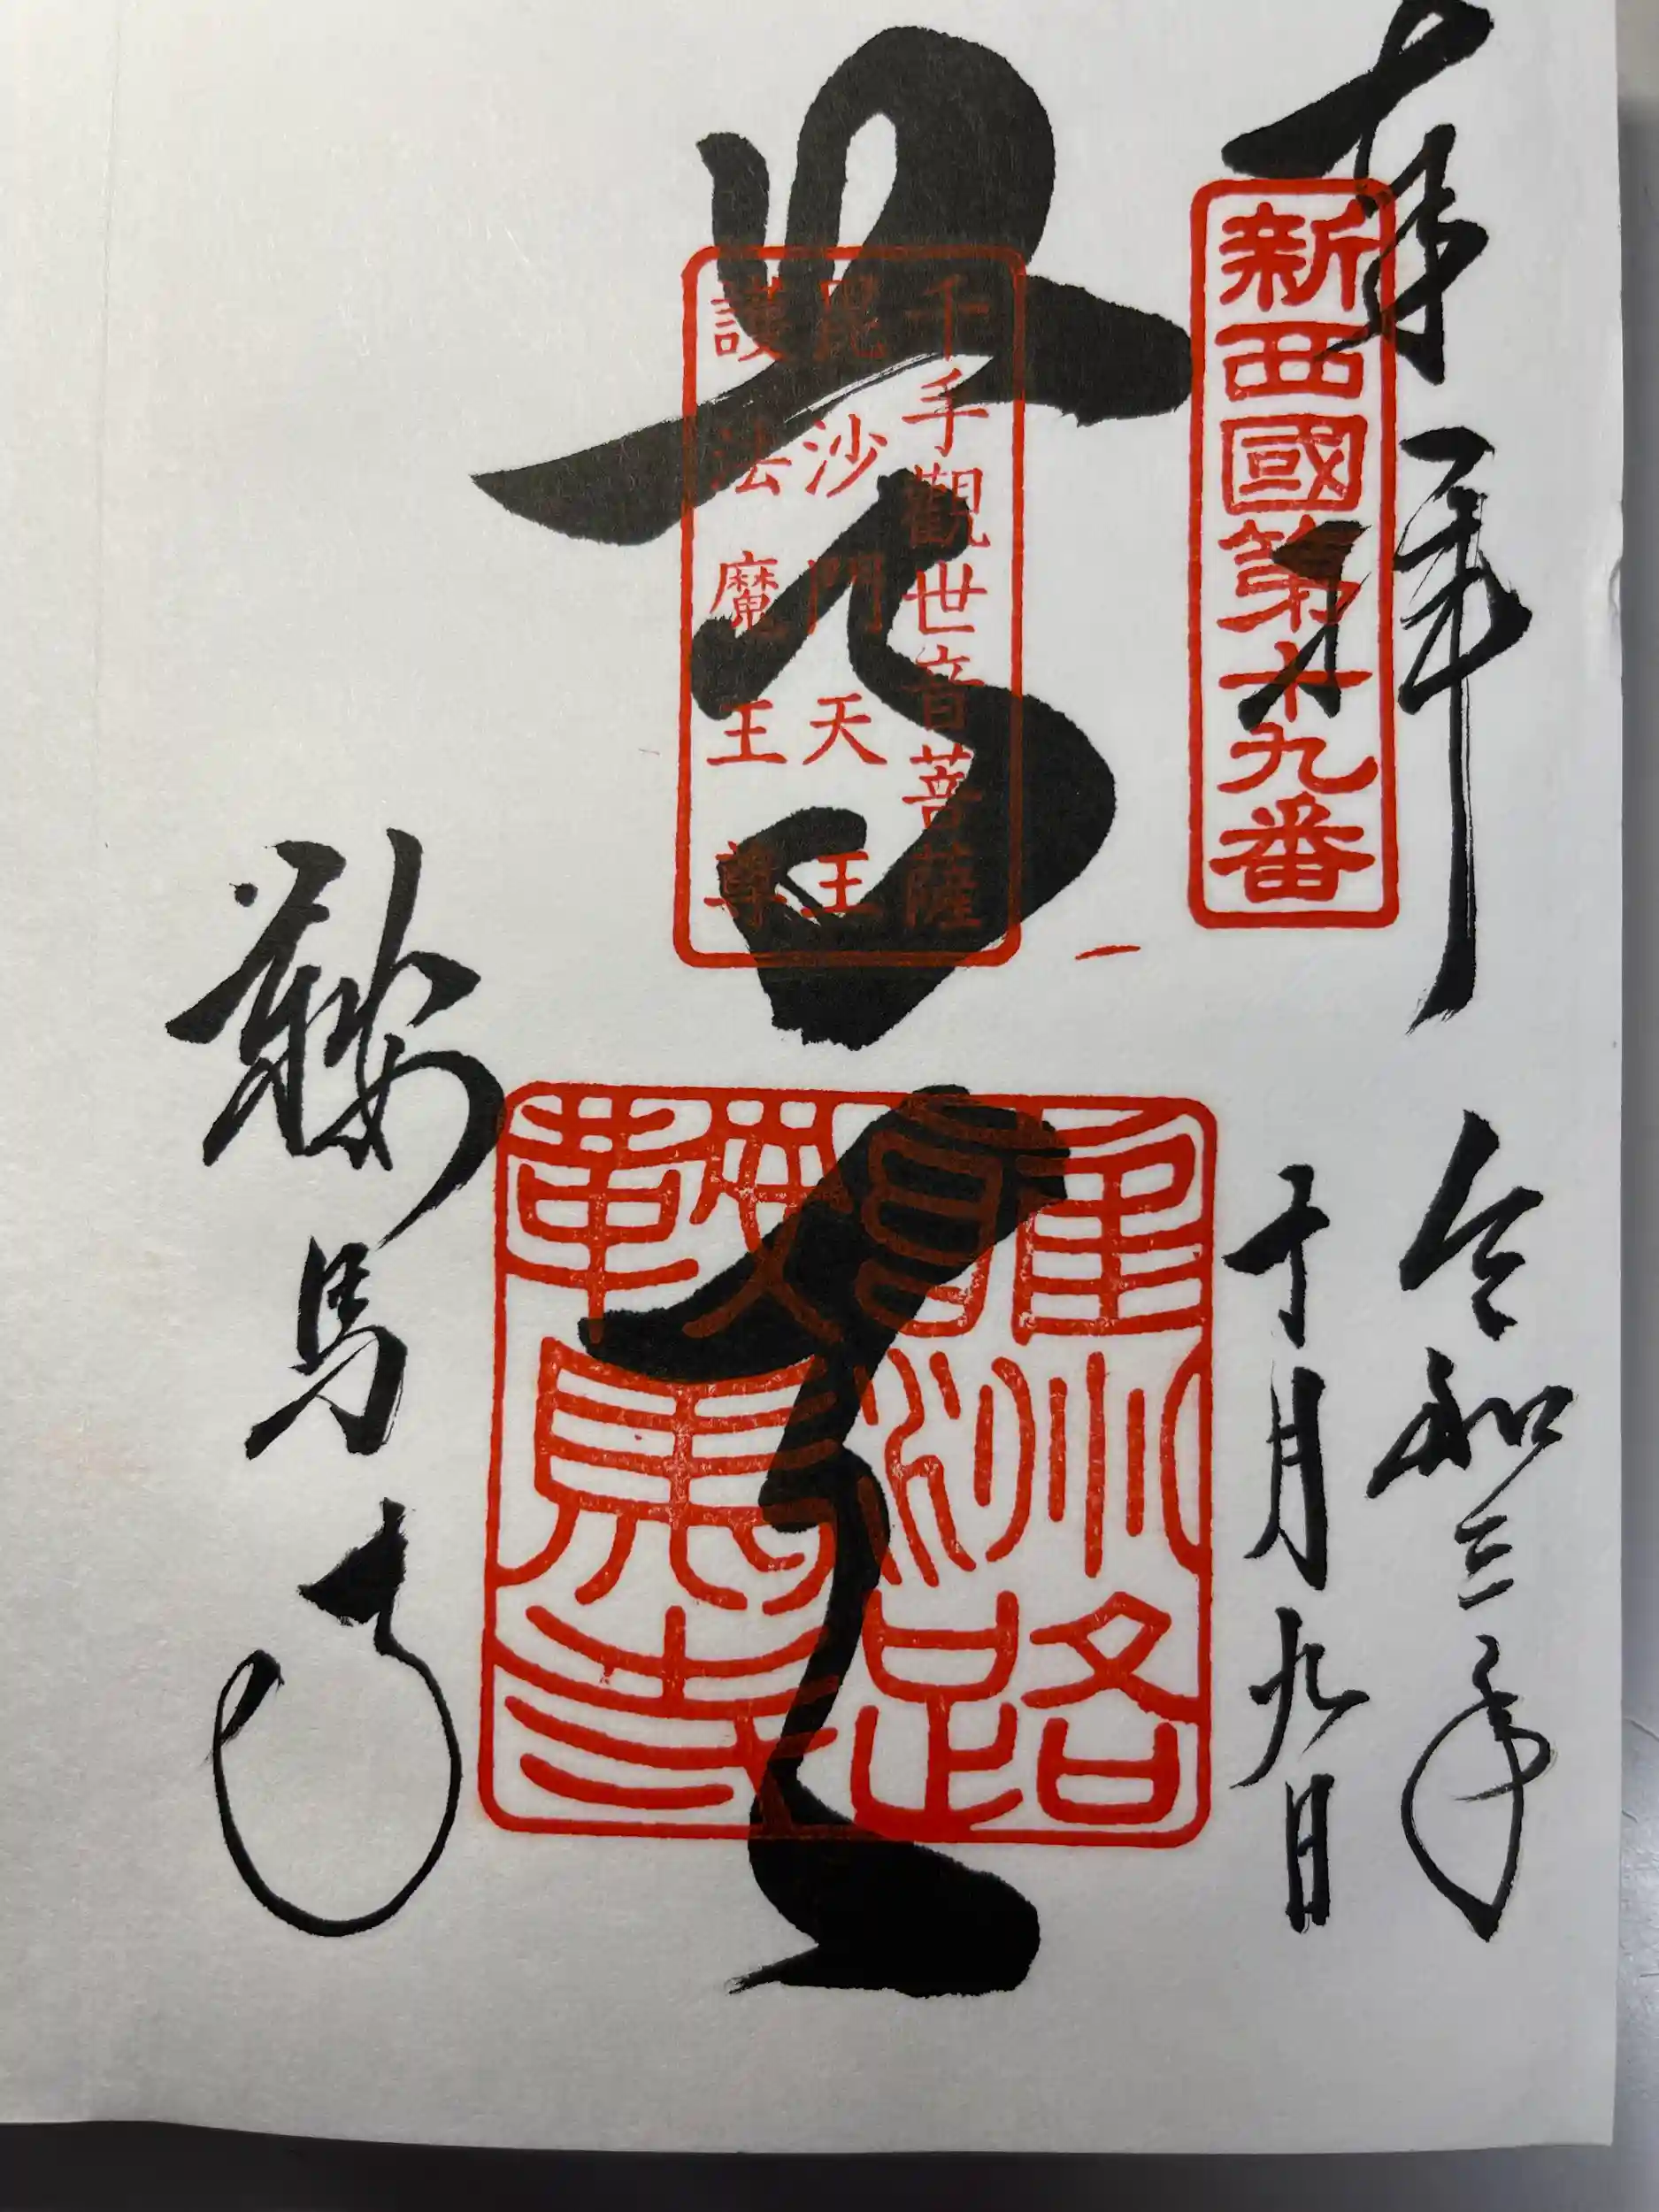 奉拝
令和三年
新西國第十九番
十月九日
尊天
千手觀世音菩薩
毘沙門天王
護法魔王尊
雍州路
鞍馬寺
鞍馬寺